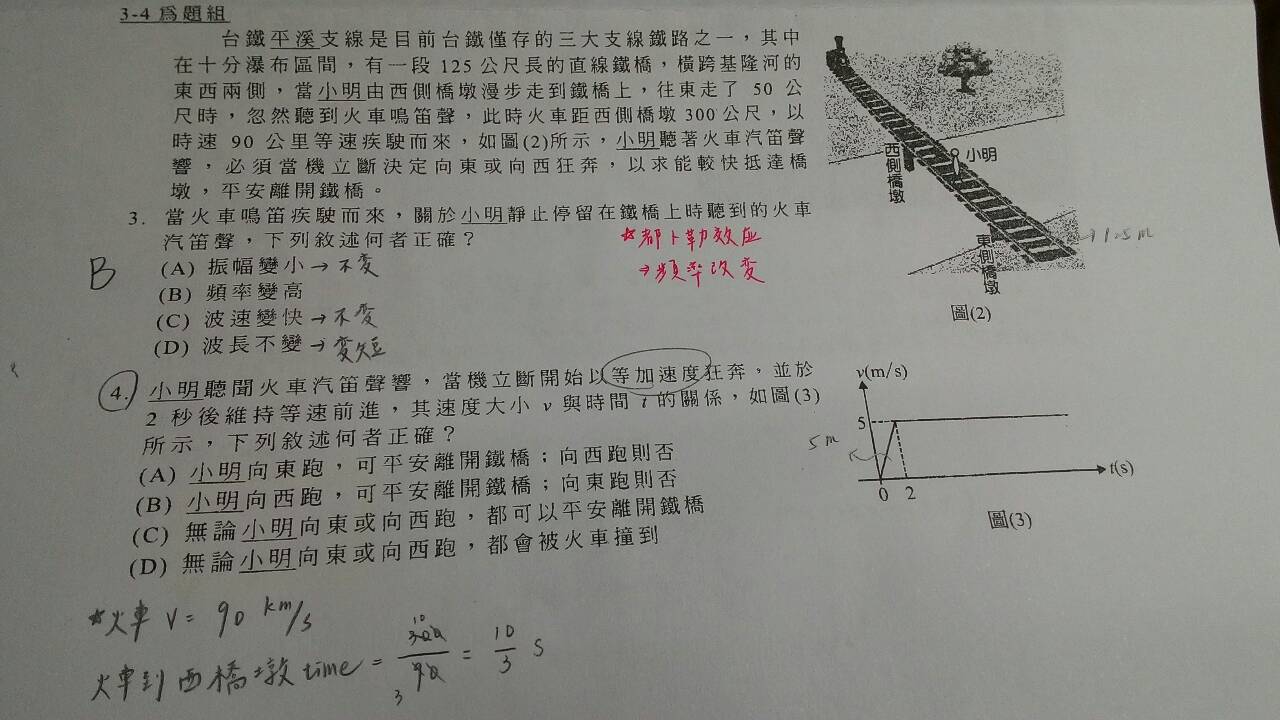 3-4 為題組
台鐵平溪支線是目前台鐵僅存的三大支線鐵路之一，其中
在十分瀑布區間，有一段 125 公尺長的直線鐵橋，橫跨基隆河的
東西兩側，當小明由西側橋墩漫步走到鐵橋上，往東走了 50 公
尺時，忽然聽到火車鳴笛聲，此時火車距西側橋墩 300 公尺，以
時速 90 公里等速疾駛而來，如圖(2)所示，小明聽著火車汽笛聲
響，必須當機立斷決定向東或向西狂奔，以求能較快抵達橋
墩，平安離開鐵橋。
西側橋墩
小明
東側橋墩
→125m
圖(2)
3. 當火車鳴笛疾駛而來，關於小明靜止停留在鐵橋上時聽到的火車
汽笛聲，下列敘述何者正確？
☆都卜勒效应
→頻率改變
B
(A) 振幅變小→不变
(B) 頻率變高
(C) 波速變快→不变
(D) 波長不變→変短
4. 小明聽聞火車汽笛聲響，當機立斷開始以等加速度狂奔，並於
2 秒後維持等速前進，其速度大小 v 與時間 t 的關係，如圖(3)
所示，下列敘述何者正確？
(A) 小明向東跑，可平安離開鐵橋；向西跑則否
(B) 小明向西跑，可平安離開鐵橋；向東跑則否
(C) 無論小明向東或向西跑，都可以平安離開鐵橋
(D) 無論小明向東或向西跑，都會被火車撞到
v(m/s)
5
5m
0 2
t(s)
圖(3)
☆火車 V = 90 km/s
火車到西橋墩 time = 300/90 = 10/3 s
10
3